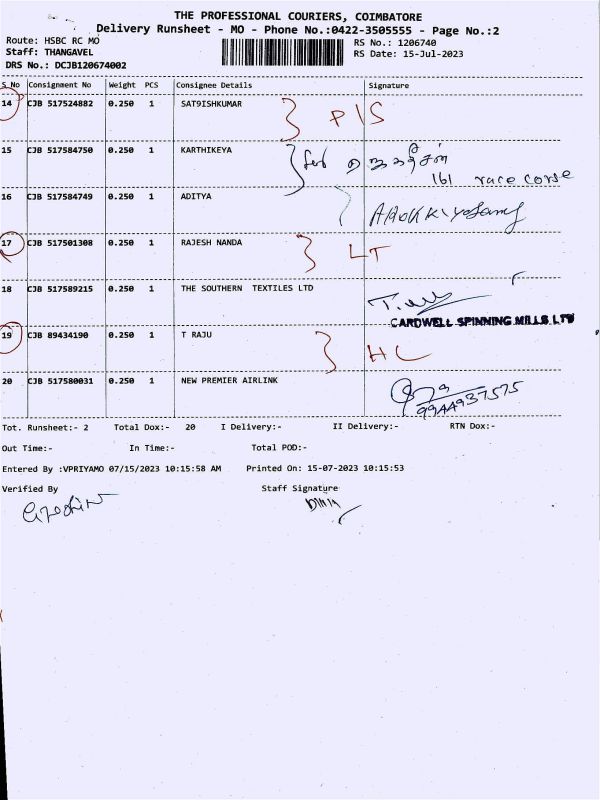 THE PROFESSIONAL COURIERS, COIMBATORE
Delivery Runsheet - MO - Phone No.:0422-3505555 - Page No.:2
Route: HSBC RC MO
RS No.: 1206740
Staff: THANGAVEL
RS Date: 15-Jul-2023
DRS No.: DCJB120674002
S No Consignment No Weight PCS Consignee Details Signature
14 CJB 517524882 0.250 1 SAT9ISHKUMAR P/S
15 CJB 517584750 0.250 1 KARTHIKEYA
161 race corse
16 CJB 517584749 0.250 1 ADITYA
17 CJB 517501308 0.250 1 RAJESH NANDA LT
18 CJB 517589215 0.250 1 THE SOUTHERN TEXTILES LTD
CARDWELL SPINNING MILLS LTD
19 CJB 89434190 0.250 1 T RAJU HC
20 CJB 517580031 0.250 1 NEW PREMIER AIRLINK
9944937575
Tot. Runsheet:- 2 Total Dox:- 20 I Delivery:- II Delivery:- RTN Dox:-
Out Time:- In Time:- Total POD:-
Entered By :VPRIYAMO 07/15/2023 10:15:58 AM Printed On: 15-07-2023 10:15:53
Verified By Staff Signature